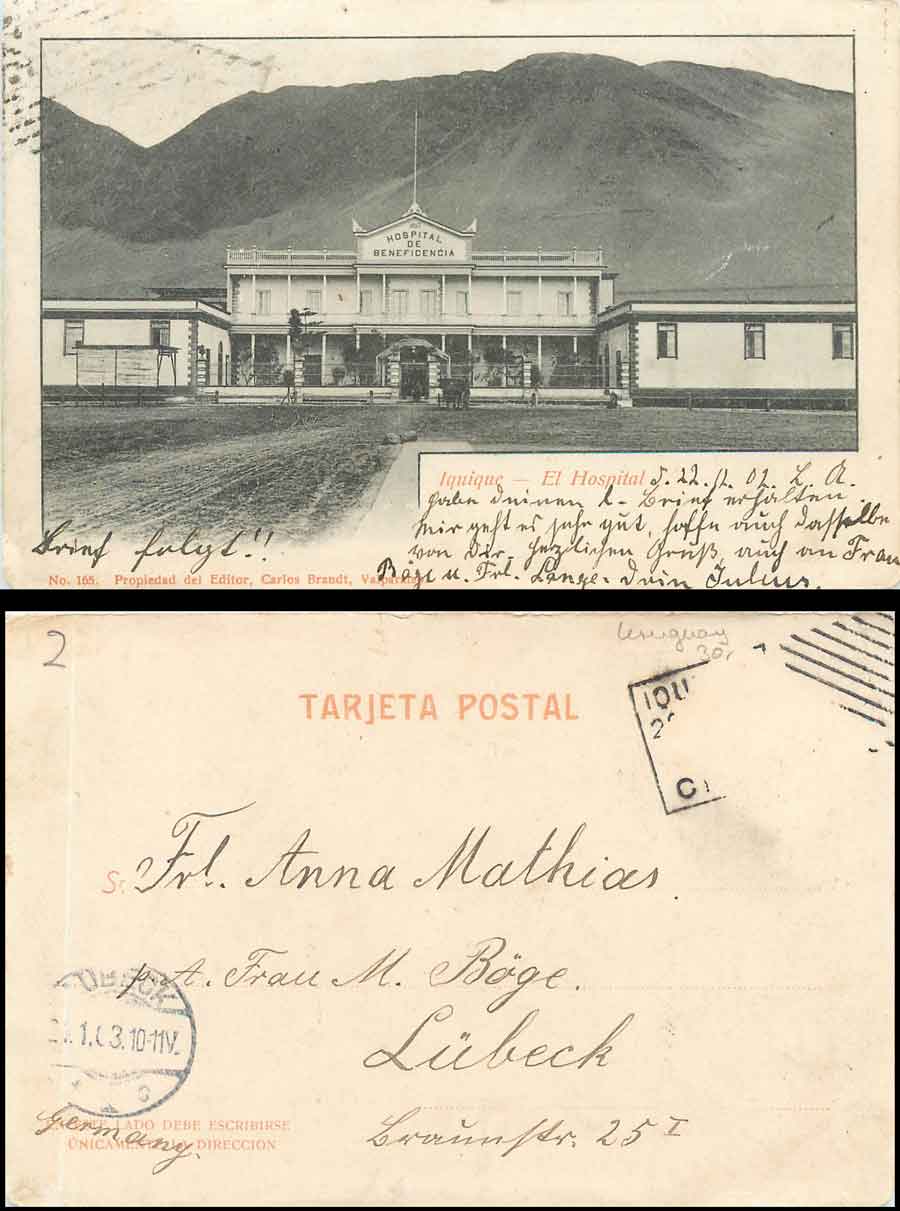 HOSPITAL
DE
BENEFICENCIA
Iquique — El Hospital 22. 02. L. A.
habe deinen l. Brief erhalten.
Mir geht es sehr gut, hoffe auch dasselbe
von Dir. Herzlichen Gruß, auch an Frau
Böge u. Frl. Lange. Dein Julius.
Brief folgt!!
No. 165. Propiedad del Editor, Carlos Brandt, Valparaiso
2
Uruguay
30.
IQU
TARJETA POSTAL
C
Sr. Frl. Anna Mathias.
p. A. Frau M. Böge.
UBECK
1.03.10-11V.
c
Lübeck
Braunstr. 25 I
Germany.
ESTE LADO DEBE ESCRIBIRSE
ÚNICAMENTE DIRECCION